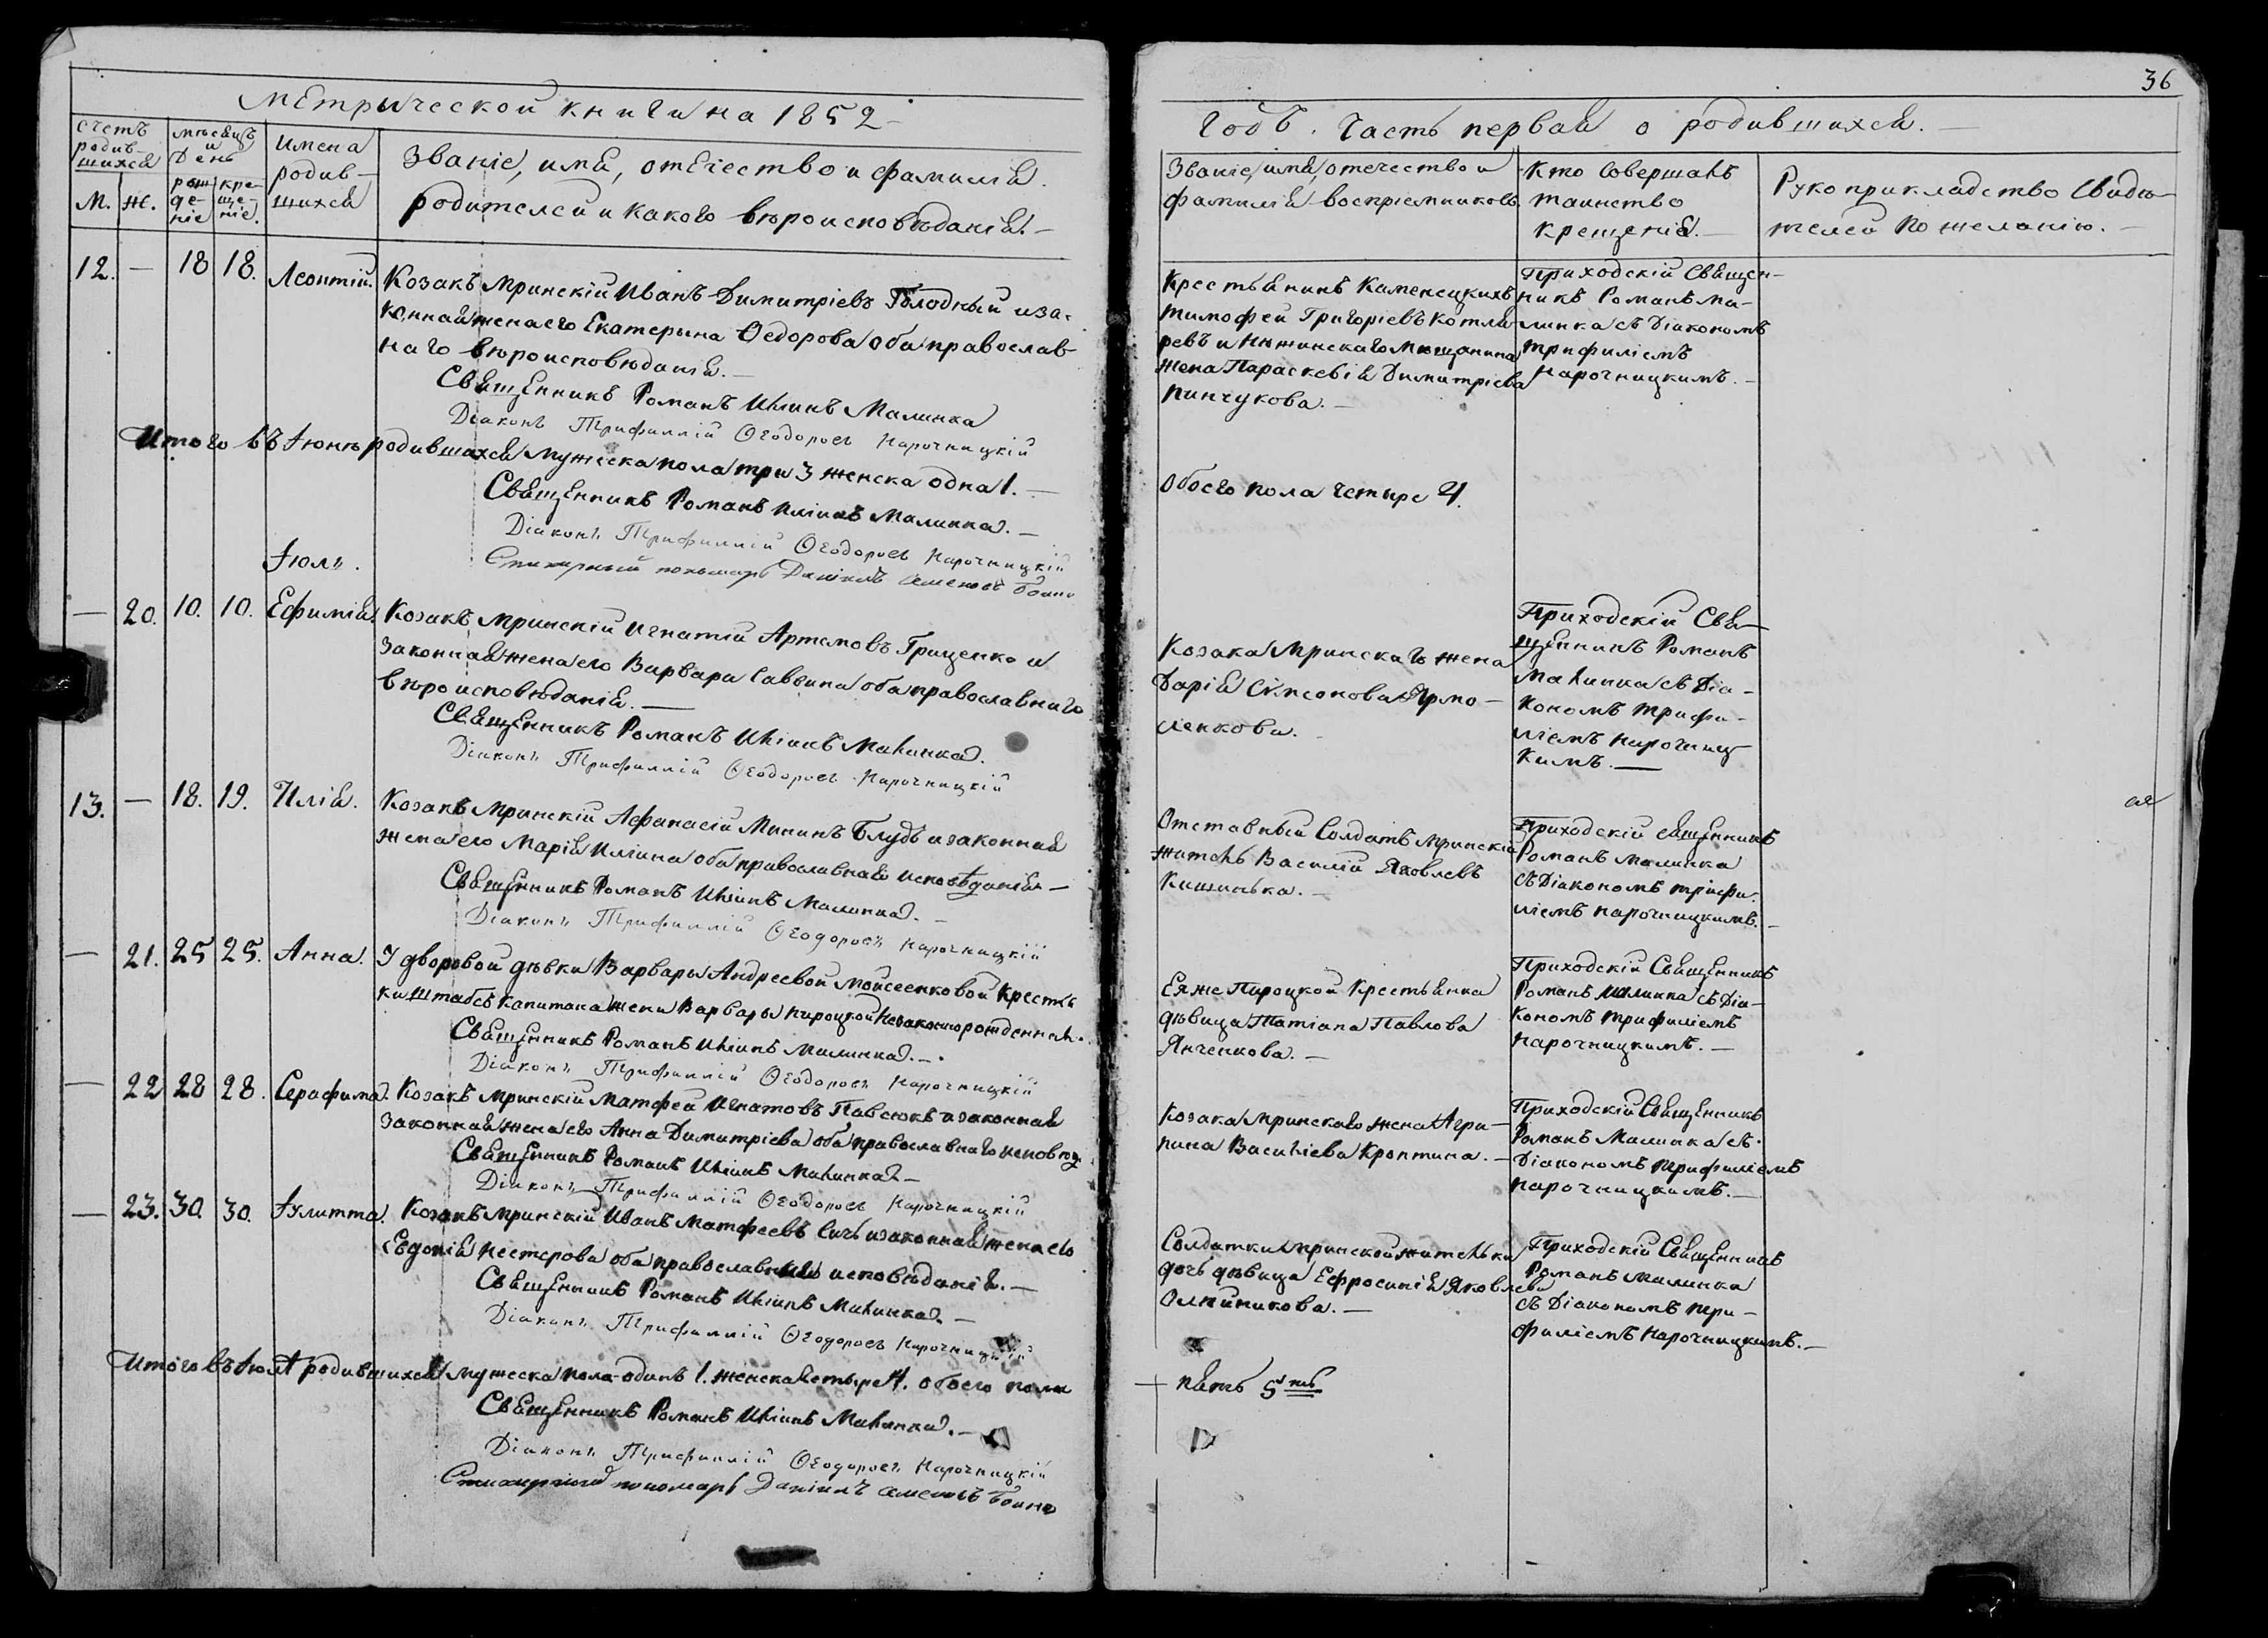 36
Метрической книги на 1852
Годъ. Часть первая о родившихся.
Счетъ родившихся
М. Ж.
Мѣсяцъ и День
рождение
крещеніе.
Имена родившихся
Званіе, имя, отечество и фамилія.
родителей и какого вѣроисповѣданія.
Званіе, имя, отечество и
фамилія воспріемниковъ.
Кто совершалъ
таинство
крещенія.
Рукоприкладство свидѣ-
телей по желанію.
12. — 18 18. Леонтій.
Козакъ Мринскій Иванъ Димитріевъ Голодный и за-
конная жена его Екатерина Ѳедорова оба православ-
наго вѣроисповѣданія.
Священникъ Романъ Иліинъ Малинка
Діаконъ Трифиллій Ѳеодоровъ Нарочницкій
Крестьянинъ Каменецкихъ
Тимофей Григоріевъ Котля-
ревъ и Нѣжинскаго мѣщанина
жена Параскевія Димитріева
Пинчукова.
Приходскій Священ-
никъ Романъ Ма-
линка съ Діакономъ
Трифиліемъ
Нарочницкимъ.
Итого въ Іюнѣ родившихся мужеска пола три 3 женска одна 1.
Обоего пола четыре 4.
Священникъ Романъ Иліинъ Малинка.
Діаконъ Трифиллій Ѳеодоровъ Нарочницкій
Стихарный пономарь Даніилъ Семеновъ
Іюль.
— 20. 10. 10. Ефимія.
Козакъ Мринскій Игнатій Артемовъ Гриценко и
законная жена его Варвара Саввина оба православнаго
вѣроисповѣданія.
Священникъ Романъ Иліинъ Малинка.
Діаконъ Трифиллій Ѳеодоровъ Нарочницкій
Козака Мринскаго жена
Дарія Симеонова Ярмо-
ленкова.
Приходскій Свя-
щенникъ Романъ
Малинка съ Діа-
кономъ Трифи-
ліемъ Нарочниц-
кимъ.
13. — 18. 19. Илія.
Козакъ Мринскій Афанасій Мининъ Блудъ и законная
жена его Марія Иліина оба православнаго исповѣданія
Священникъ Романъ Иліинъ Малинка.
Діаконъ Трифиллій Ѳеодоровъ Нарочницкій
Отставный Солдатъ Мринскій
житель Василій Яковлевъ
Кишинька.
Приходскій священникъ
Романъ Малинка
съ Діакономъ Трифи-
ліемъ Нарочницкимъ.
— 21. 25 25. Анна.
У дворовой дѣвки Варвары Андреевой Мойсеенковой крестьян-
ки Штабсъ Капитана жены Варвары Пироцкой незаконнорожденная.
Священникъ Романъ Иліинъ Малинка.
Діаконъ Трифиллій Ѳеодоровъ Нарочницкій
Ея же Пироцкой Крестьянка
дѣвица Татіана Павлова
Янченкова.
Приходскій Священникъ
Романъ Малинка съ Діа-
кономъ Трифиліемъ
Нарочницкимъ.
— 22 28 28. Серафима.
Козакъ Мринскій Матфей Игнатовъ Павсюкъ и законная
законная жена его Анна Димитріева оба православнаго исповѣд.
Священникъ Романъ Иліинъ Малинка
Діаконъ Трифиллій Ѳеодоровъ Нарочницкій
Козака Мринскаго жена Агри-
пина Василіева Кроптина.
Приходскій Священникъ
Романъ Малинка съ
Діакономъ Трифиліемъ
Нарочницкимъ.
— 23. 30. 30. Іулитта.
Козакъ Мринскій Иванъ Матфеевъ Сичъ и законная жена его
Евдокія Нестерова оба православнаго исповѣданія.
Священникъ Романъ Иліинъ Малинка
Діаконъ Трифиллій Ѳеодоровъ Нарочницкій
Солдатки Мринской жительки
дочь дѣвица Ефросинія Яковлева
Олейникова.
Приходскій Священникъ
Романъ Малинка
съ Діакономъ Три-
филіемъ Нарочницкимъ.
Итого въ Іюлѣ родившихся мужеска пола одинъ 1. женска четыре 4. обоего пола
пять 5ть
Священникъ Романъ Иліинъ Малинка.
Діаконъ Трифиллій Ѳеодоровъ Нарочницкій
Стихарный пономарь Даніилъ Семеновъ